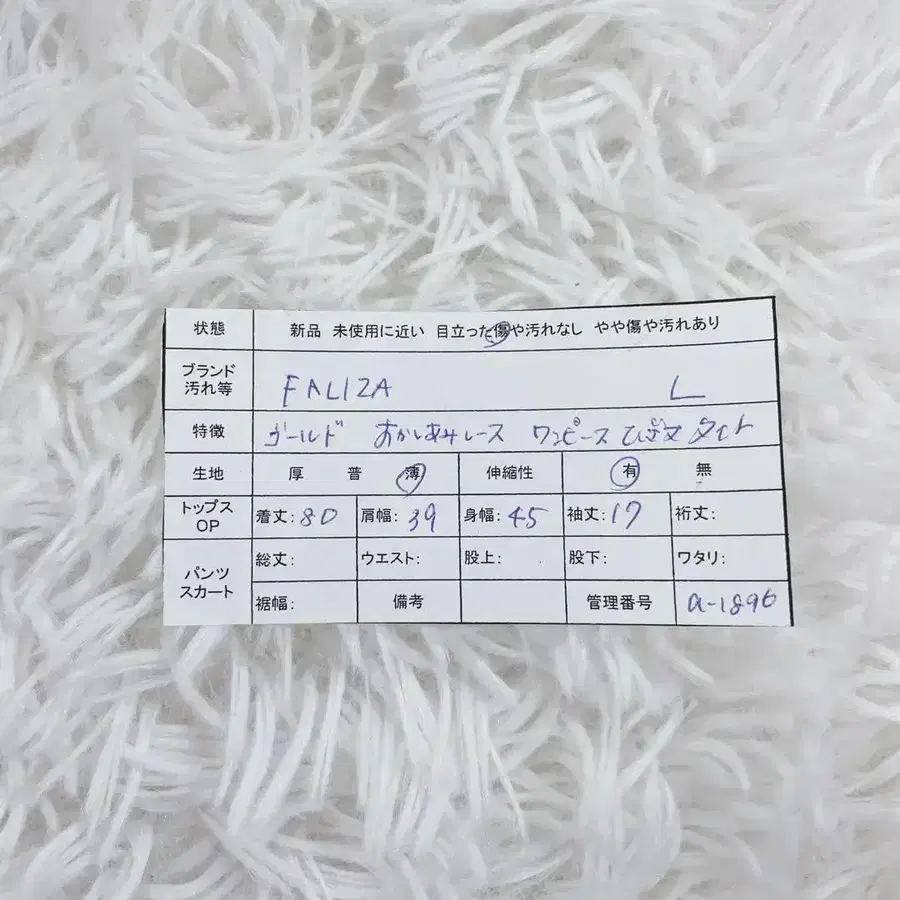 状態 新品 未使用に近い 目立った傷や汚れなし やや傷や汚れあり
ブランド
汚れ等 FALIZA L
特徴 ゴールド おかしあみレース ワンピース ひざ丈 タイト
生地 厚 普 薄 伸縮性 有 無
トップス
OP 着丈:80 肩幅:39 身幅:45 袖丈:17 裄丈:
パンツ
スカート 総丈: ウエスト: 股上: 股下: ワタリ:
裾幅: 備考 管理番号 a-1896